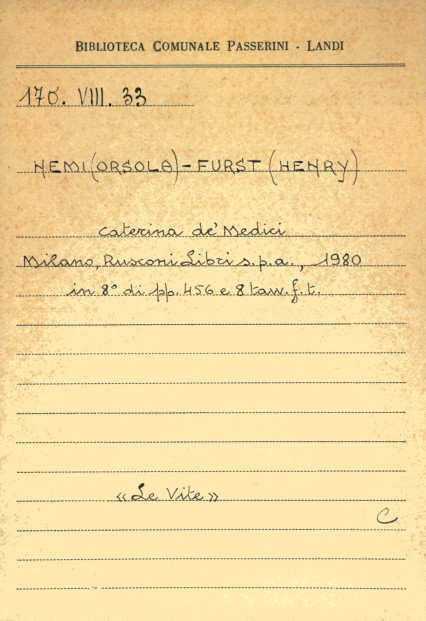 BIBLIOTECA COMUNALE PASSERINI - LANDI
170. VIII. 33
NEMI (ORSOLA) - FURST (HENRY)
Caterina de' Medici
Milano, Rusconi Libri s.p.a., 1980
in 8° di pp. 456 e 8 tavv. f. t.
«Le Vite»
C